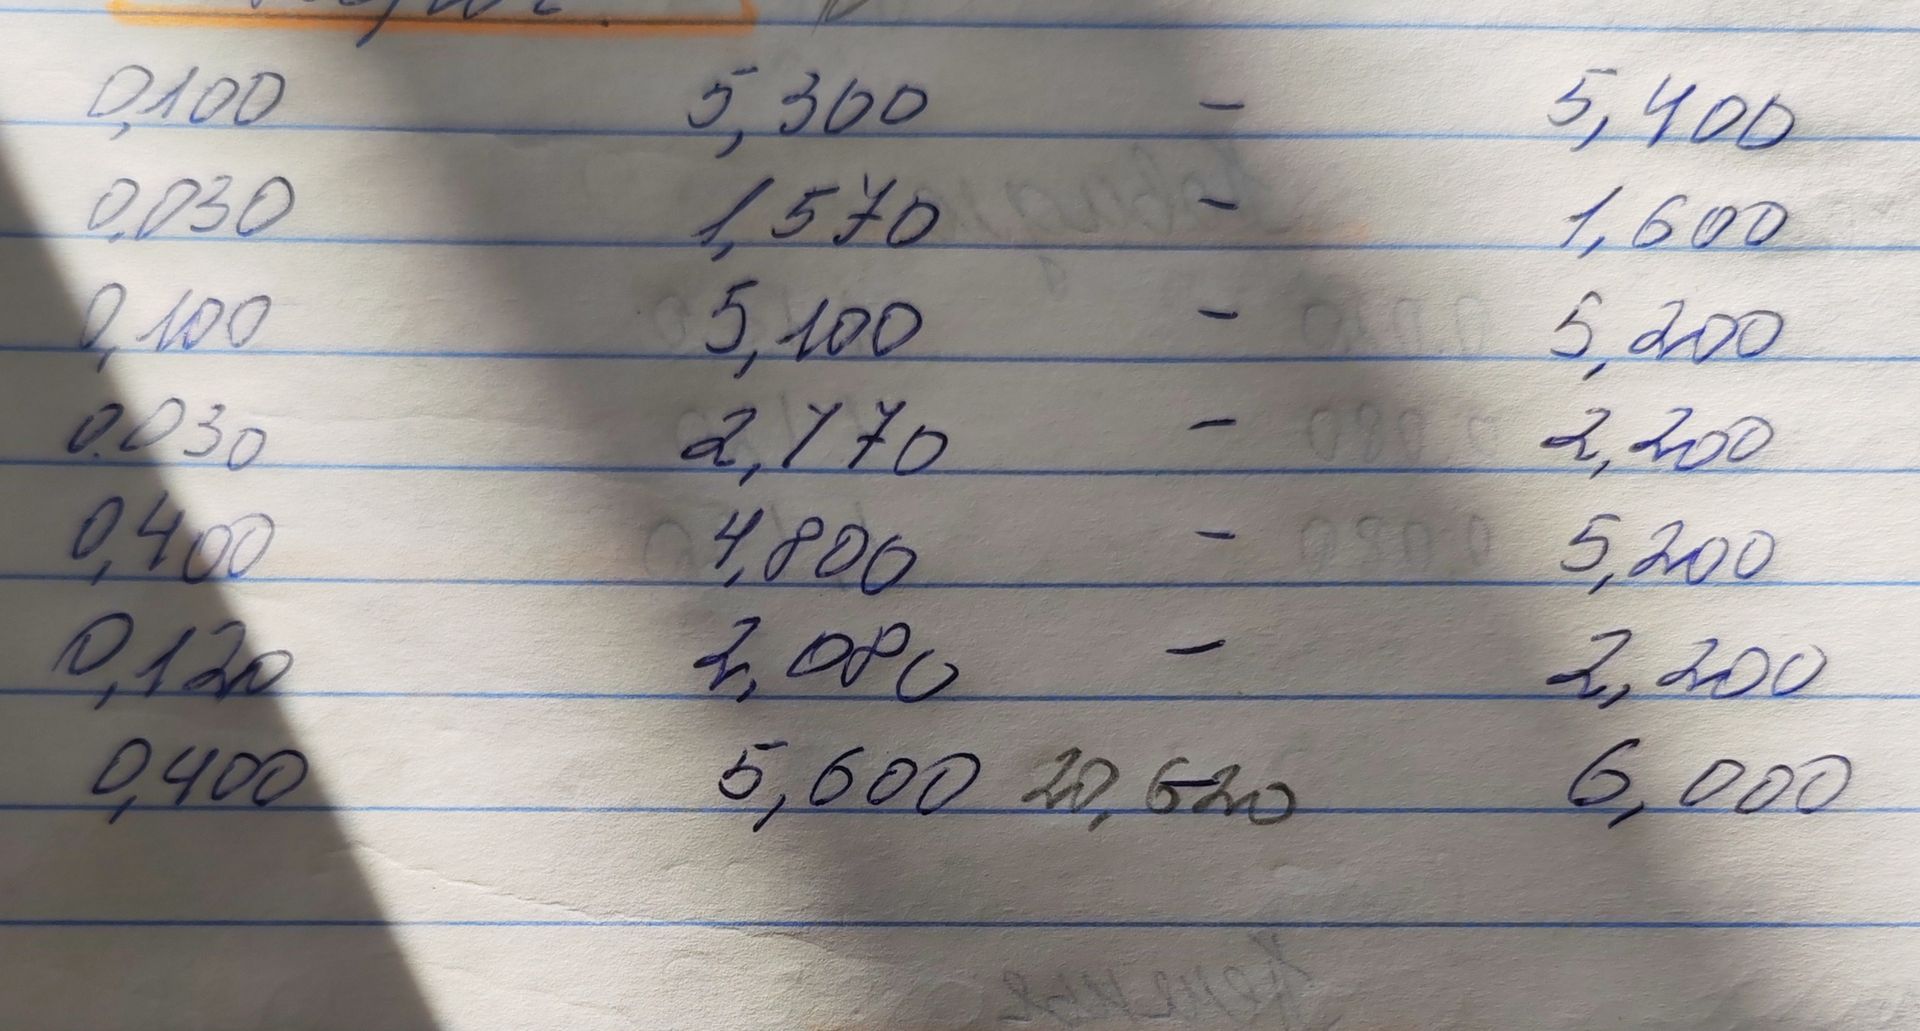 0,100 5,300 - 5,400
0,030 1,570 - 1,600
0,100 5,100 - 5,200
0.030 2,170 - 2,200
0,400 4,800 - 5,200
0,120 2,080 - 2,200
0,400 5,600 20,620 - 6,000